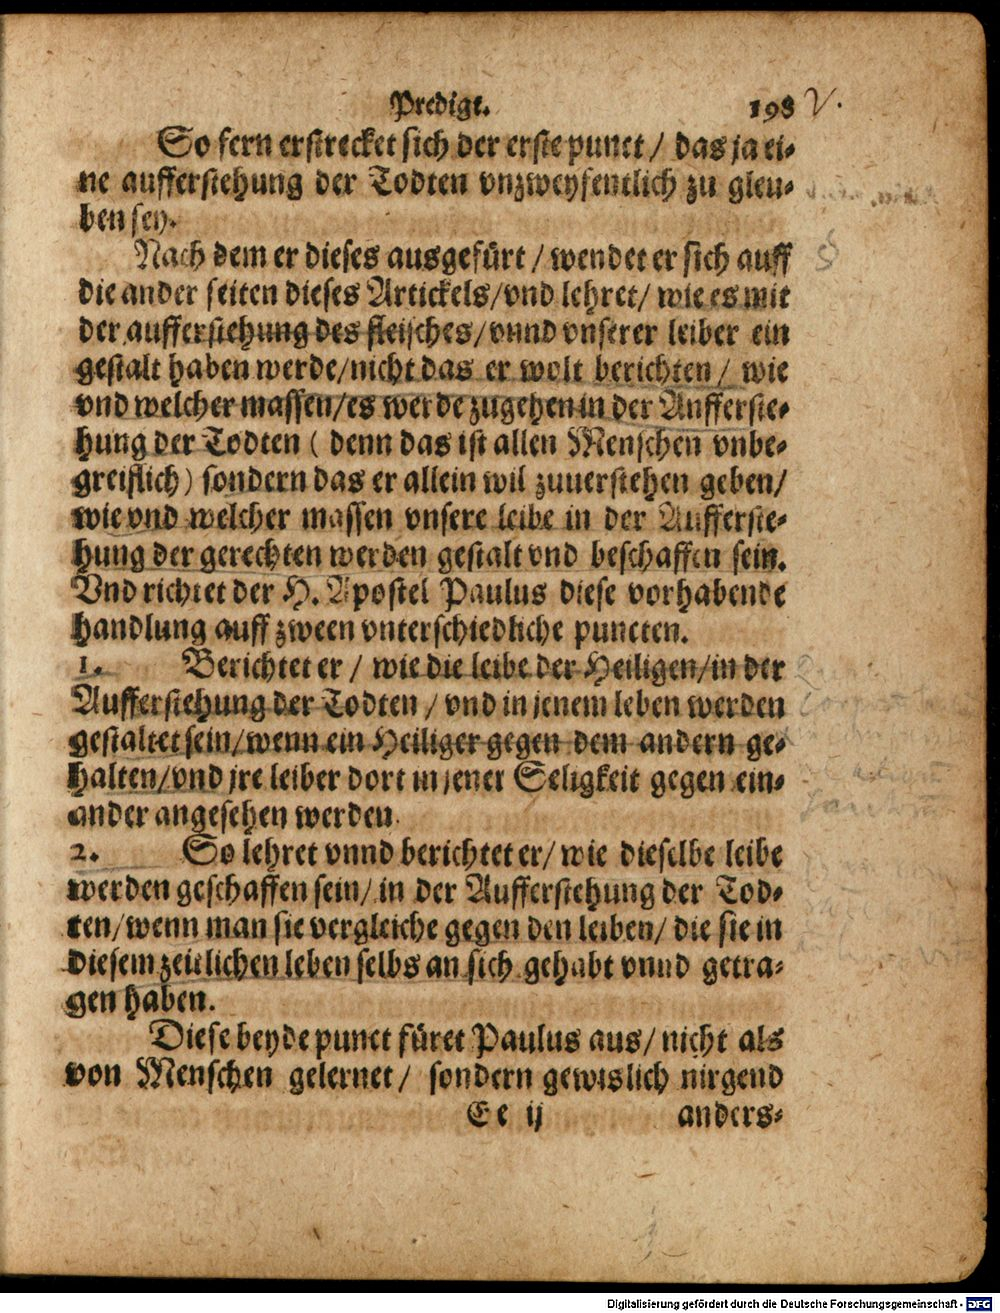 Predigt. 198
So fern erstrecket sich der erste punct / das ja ei-
ne aufferstehung der Todten vnzweyfentlich zu gleu-
ben sey.
Nach dem er dieses ausgefürt / wendet er sich auff
die ander seiten dieses Artickels/vnd lehret/ wie es mit
der aufferstehung des fleisches/vnnd vnserer leiber ein
gestalt haben werde/nicht das er wolt berichten / wie
vnd welcher massen/es werde zugehen in der Aufferste-
hung der Todten ( denn das ist allen Menschen vnbe-
greiflich) sondern das er allein wil zuuerstehen geben/
wie vnd welcher massen vnsere leibe in der Aufferste-
hung der gerechten werden gestalt vnd beschaffen sein.
Vnd richtet der H. Apostel Paulus diese vorhabende
handlung auff zween vnterschiedliche puncten.
1. Berichtet er / wie die leibe der Heiligen/in der
Aufferstehung der Todten / vnd in jenem leben werden
gestaltet sein/wenn ein Heiliger gegen dem andern ge-
halten/vnd jre leiber dort in jener Seligkeit gegen ein-
ander angesehen werden.
2. So lehret vnnd berichtet er/ wie dieselbe leibe
werden geschaffen sein/ in der Aufferstehung der Tod-
ten/wenn man sie vergleiche gegen den leiben/ die sie in
diesem zeitlichen leben selbs an sich gehabt vnnd getra-
gen haben.
Diese beyde punct füret Paulus aus/ nicht als
von Menschen gelernet/ sondern gewislich nirgend
Ee ij anders-
Digitalisierung gefördert durch die Deutsche Forschungsgemeinschaft - DFG